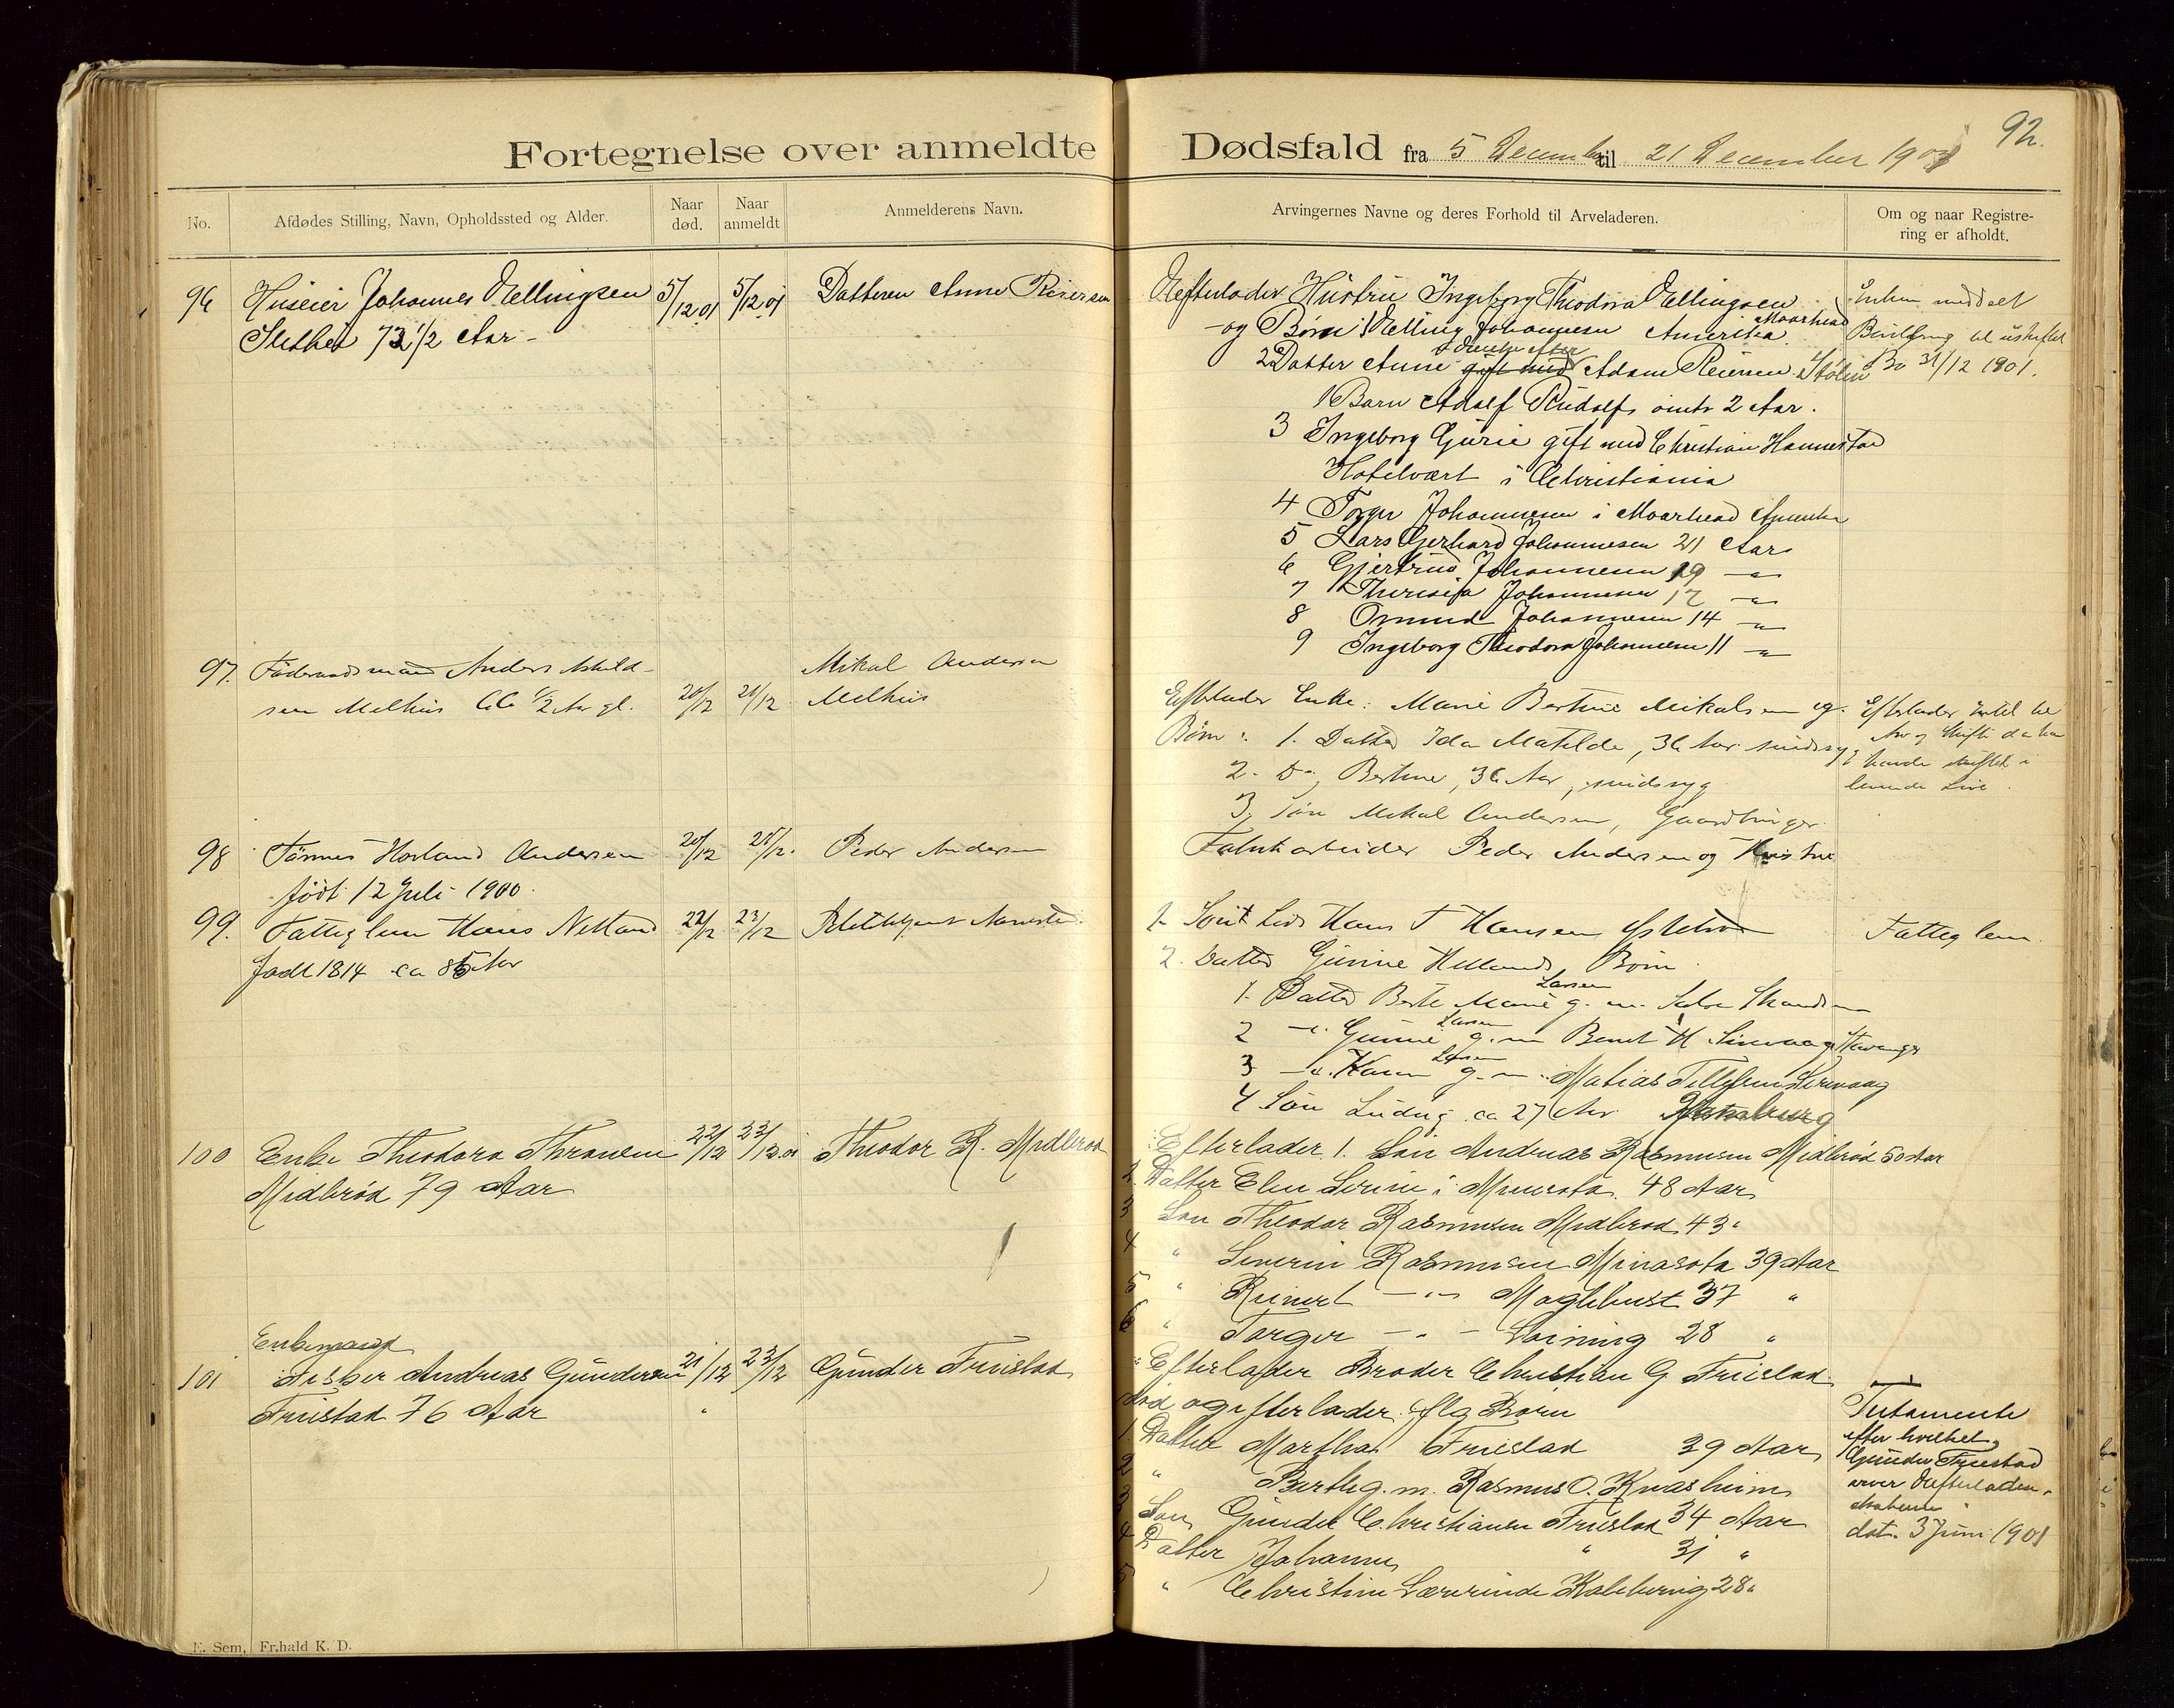 Fortegnelse over anmeldte Dødsfald fra 5 December til 21 December 1901
92.
No.
Afdødes Stilling, Navn, Opholdssted og Alder.
Naar død.
Naar anmeldt
Anmelderens Navn.
Arvingernes Navne og deres Forhold til Arveladeren.
Om og naar Registrering er afholdt.
96 Huseier Johannes Ellingsen 5/12 01 5/12 01 Datteren Anne Reiersen
Slethei 73 1/2 Aar
Efterlader Hustru Ingeborg Theodora Ellingsen
og Børn: 1 Elling Johannesen Amerika Moorhead
2 Datter Anne gift med Enke efter Adam Reiersen
1 Barn Adolf Rudolf, omtr 2 Aar.
3 Ingeborg Gurie gift med Christian Hannestad
Hotelvært i Christiania
4 Torger Johannesen i Moorhead Amerika
5 Lars Gerhard Johannesen 21 Aar
6 Gjertrud Johannesen 19 — " —
7 Theresia Johannesen 17 — " —
8 Omund Johannesen 14 — " —
9 Ingeborg Theodora Johannesen 11 — " —
Enken meddelt
Bevilling til uskiftet
Bo 31/12 1901.
97. Føderaadsmand Anders Askild-
sen Melhus 66 1/2 Aar gl. 20/12 21/12 Mikal Andersen
Melhus
Efterlader Enke: Marie Bertine Mikalsen og
Børn: 1. Datter Ida Matilde, 36 Aar sindssyg
2. Do, Bertine, 36 Aar, sindssyg
3. Søn Mikal Andersen, Gaardbruger
Efterlader intet til
Arv og Skifte da han
havde skiftet i
levende Live.
98 Tønnes Hovland Andersen 20/12 21/12. Peder Andersen
født 12 Juli 1900.
Fabrikarbeider Peder Andersen og Hustru
99. Fatteglem Hans Netland 22/12 23/12
født 1814 ca 85 Aar
1. Hans T Hansen
2. Datter Gunnie Hellands Børn
1. Datter Berte Marie Larsen g. m.
2 — " — Gunnie Larsen g. m Bernt H. Sirevaag Stavanger
3 — " — Karen Larsen g. m. Matias Tollefsen Sirevaag
4 Søn Ludvig ca 27 Aar
Fatteglem.
100 Enke Theodora Thronsen 22/12 23/12 01 Theodor R. Midbrød
Midbrød 79 Aar
Efterlader 1. Søn Andreas Rasmusen Midbrød 50 Aar
2. Datter Elen Serine i Minesota 48 Aar
3 Søn Theodor Rasmusen Midbrød 43 "
4 " Severin Rasmusen Minasota 39 Aar
5 " Reinert — " — Maglehust 37 "
6 " Torger — " — 28 "
Enkemand
101 Fisker Andreas Gundersen 21/12 23/12 Gunder Fruestad
Fruestad 76 Aar
Efterlader Broder Christian G Fruestad
død og efterlader flg Børn
1. Datter Martha Fruestad 39 Aar
2 " Berthe g. m. Rasmus O. Kvasheim
3 Søn Gunder Christiansen Fruestad 34 Aar
4 Datter Johanne " 31 "
5 " Christine Lærerinde 28 "
Testamente
efter hvilket
Gunder Fruestad
arver Efterladen-
skaberne
dat. 3 Juni 1901
E. Sem, Fr.hald K. D.